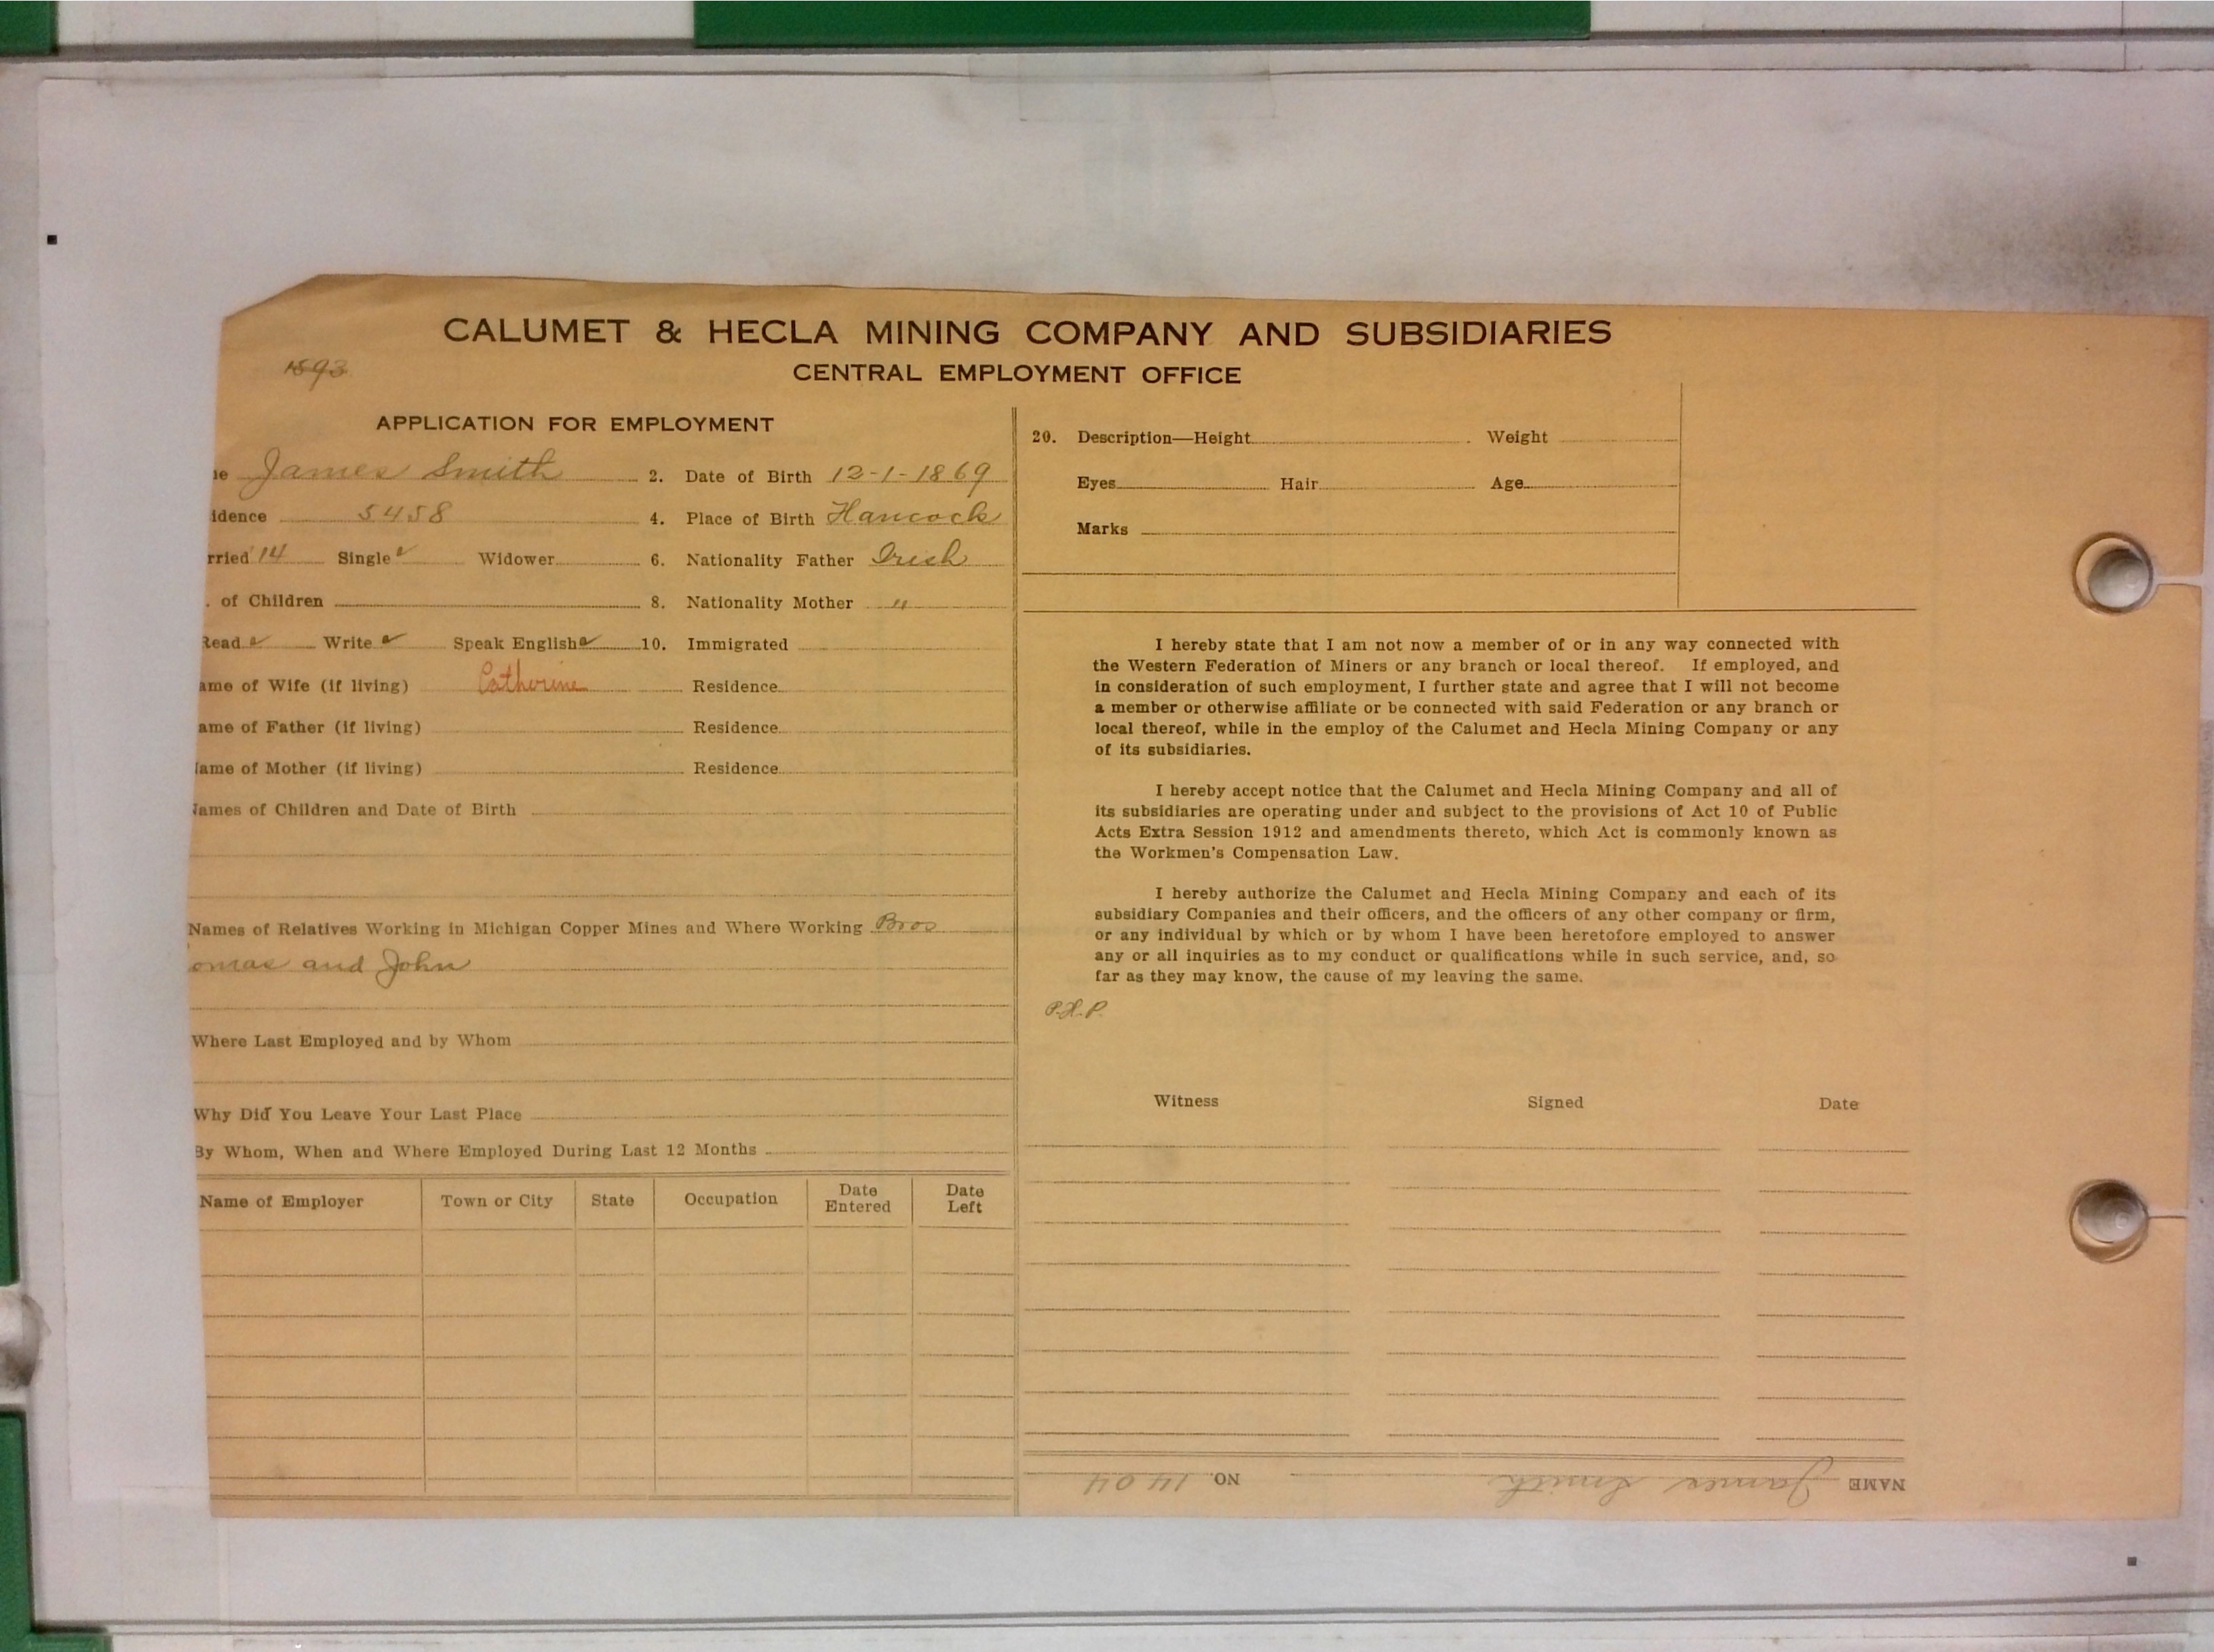 CALUMET & HECLA MINING COMPANY AND SUBSIDIARIES
1893
CENTRAL EMPLOYMENT OFFICE
APPLICATION FOR EMPLOYMENT
e James Smith 2. Date of Birth 12-1-1869
idence 5458 4. Place of Birth Hancock
rried 14 Single Widower 6. Nationality Father Irish
. of Children 8. Nationality Mother "
Read Write Speak English 10. Immigrated
ame of Wife (if living) Catherine Residence
ame of Father (if living) Residence
ame of Mother (if living) Residence
Names of Children and Date of Birth
Names of Relatives Working in Michigan Copper Mines and Where Working Bros
omas and John
Where Last Employed and by Whom
Why Did You Leave Your Last Place
By Whom, When and Where Employed During Last 12 Months
Name of Employer Town or City State Occupation Date Entered Date Left
20. Description—Height Weight
Eyes Hair Age
Marks
I hereby state that I am not now a member of or in any way connected with
the Western Federation of Miners or any branch or local thereof. If employed, and
in consideration of such employment, I further state and agree that I will not become
a member or otherwise affiliate or be connected with said Federation or any branch or
local thereof, while in the employ of the Calumet and Hecla Mining Company or any
of its subsidiaries.
I hereby accept notice that the Calumet and Hecla Mining Company and all of
its subsidiaries are operating under and subject to the provisions of Act 10 of Public
Acts Extra Session 1912 and amendments thereto, which Act is commonly known as
the Workmen's Compensation Law.
I hereby authorize the Calumet and Hecla Mining Company and each of its
subsidiary Companies and their officers, and the officers of any other company or firm,
or any individual by which or by whom I have been heretofore employed to answer
any or all inquiries as to my conduct or qualifications while in such service, and, so
far as they may know, the cause of my leaving the same.
P.H.P.
Witness Signed Date
NAME James Smith NO. 1404